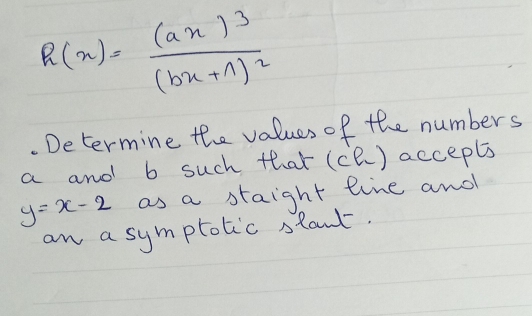 h(x) = (ax)³ / (bx + 1)²
. Determine the values of the numbers
a and b such that (Ch) accepts
y = x - 2 as a staight line and
an asymptotic slant.